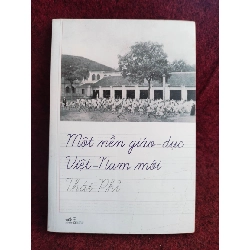 Một nền giáo-dục
Việt-Nam mới
Thái Phỉ